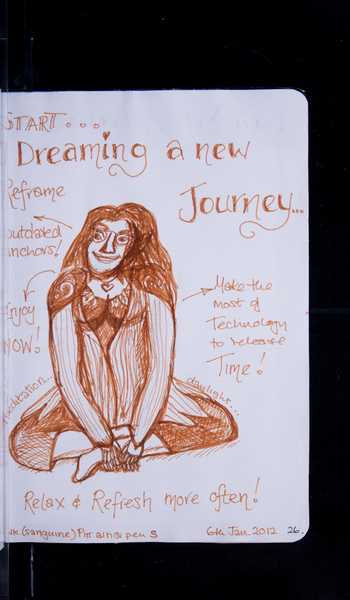 START...
Dreaming a new
Journey...
Reframe
outdated
anchors!
Enjoy
NOW!
Make the
most of
Technology
to release
Time!
meditation...
daylight...
Relax & Refresh more often!
(sanguine) Pitt artist pen S
6th Jan. 2012 26.